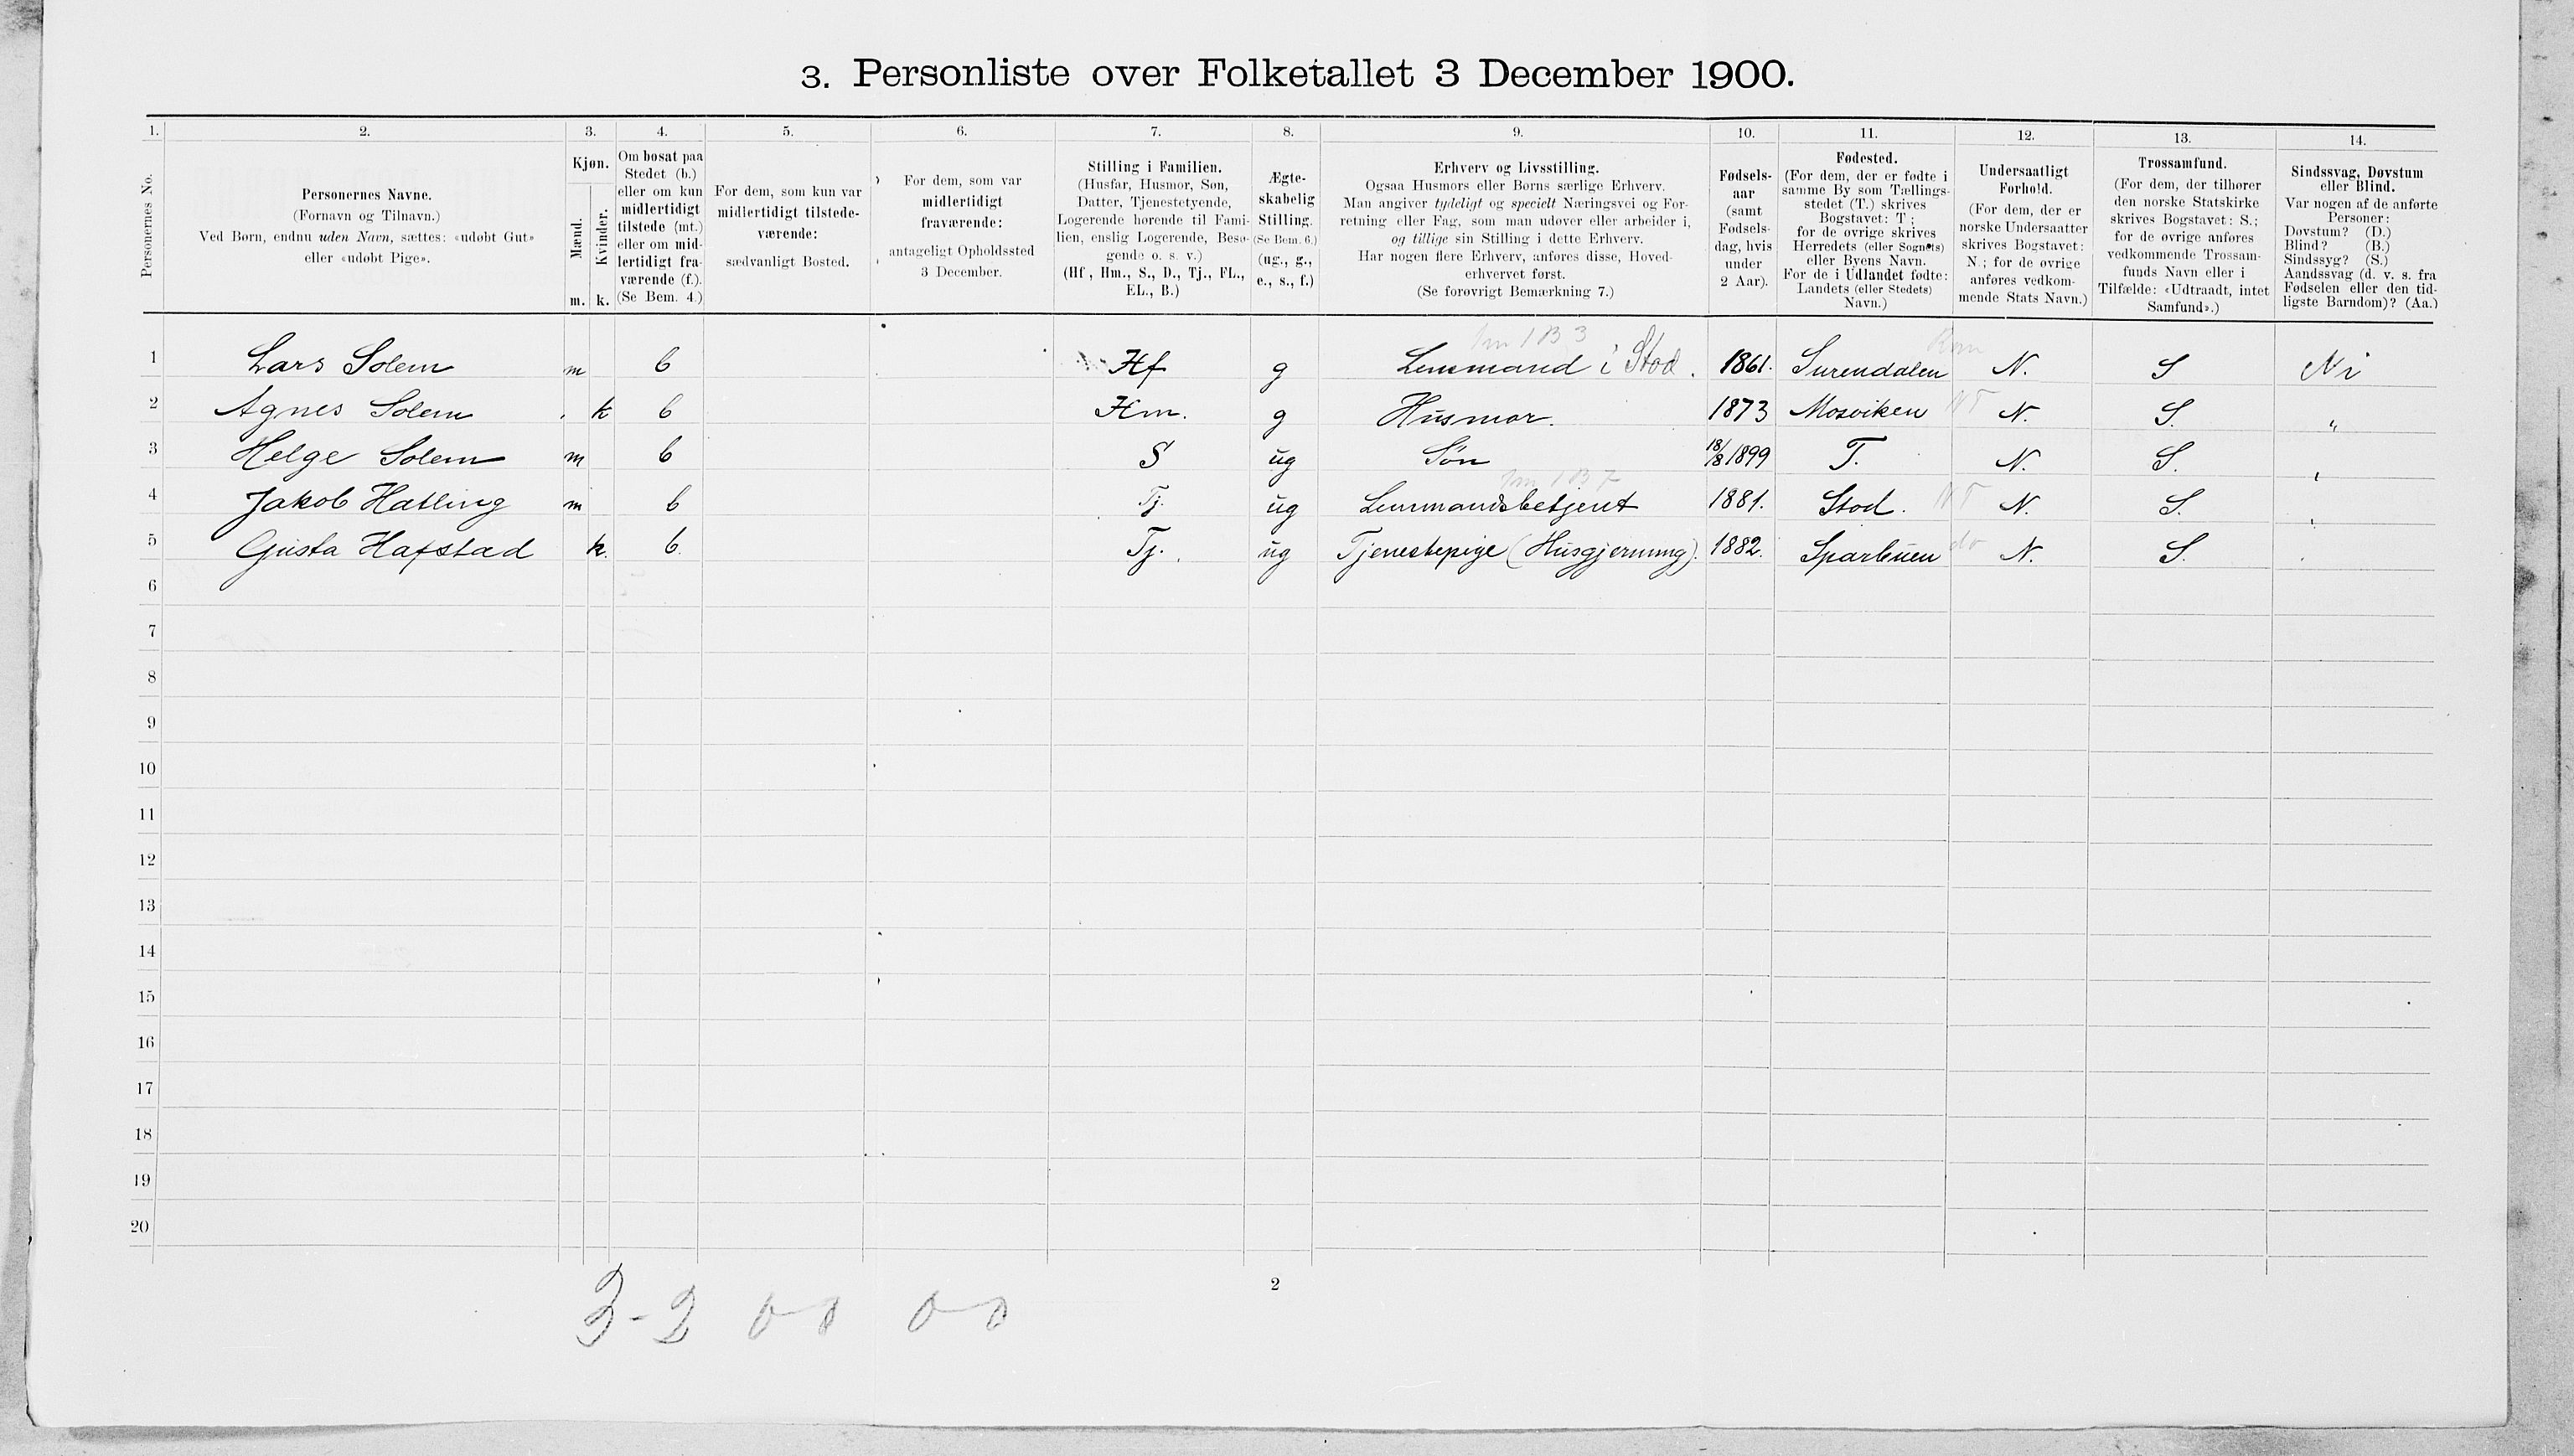 3. Personliste over Folketallet 3 December 1900.
1. 2. 3. 4. 5. 6. 7. 8. 9. 10. 11. 12. 13. 14.
Personernes No.
Personernes Navne.
(Fornavn og Tilnavn.)
Ved Børn, endnu uden Navn, sættes: «udøbt Gut»
eller «udøbt Pige».
Kjøn.
Mænd.
Kvinder.
m. k.
Om bosat paa
Stedet (b.)
eller om kun
midlertidigt
tilstede (mt.)
eller om mid-
lertidigt fra-
værende (f.).
(Se Bem. 4.)
For dem, som kun var
midlertidigt tilstede-
værende:
sædvanligt Bosted.
For dem, som var
midlertidigt
fraværende:
antageligt Opholdssted
3 December.
Stilling i Familien.
(Husfar, Husmor, Søn,
Datter, Tjenestetyende,
Logerende hørende til Fami-
lien, enslig Logerende, Besø-
gende o. s. v.)
(Hf., Hm., S., D., Tj., FL.,
EL., B.)
Ægte-
skabelig
Stilling.
(Se Bem. 6.)
(ug., g.,
e., s., f.)
Erhverv og Livsstilling.
Ogsaa Husmors eller Børns særlige Erhverv.
Man angiver tydeligt og specielt Næringsvei og For-
retning eller Fag, som man udøver eller arbeider i,
og tillige sin Stilling i dette Erhverv.
Har nogen flere Erhverv, anføres disse, Hoved-
erhvervet først.
(Se forøvrigt Bemærkning 7.)
Fødsels-
aar
(samt
Fødsels-
dag, hvis
under
2 Aar).
Fødested.
(For dem, der er fødte i
samme By som Tællings-
stedet (T.) skrives
Bogstavet: T;
for de øvrige skrives
Herredets (eller Sognets)
eller Byens Navn.
For de i Udlandet fødte:
Landets (eller Stedets)
Navn.)
Undersaatligt
Forhold.
(For dem, der er
norske Undersaatter
skrives Bogstavet:
N.; for de øvrige
anføres vedkom-
mende Stats Navn.)
Trossamfund.
(For dem, der tilhører
den norske Statskirke
skrives Bogstavet: S.;
for de øvrige anføres
vedkommende Trossam-
funds Navn eller i
Tilfælde: «Udtraadt, intet
Samfund».)
Sindssvag, Døvstum
eller Blind.
Var nogen af de anførte
Personer:
Døvstum? (D.)
Blind? (B.)
Sindssyg? (S.)
Aandssvag (d. v. s. fra
Fødselen eller den tid-
ligste Barndom)? (Aa.)
1 Lars Solem m b Hf g Lensmand i Stod. 1861. Surendalen Rom N. S Ni
2 Agnes Solem k b Hm. g Husmor. 1873 Mosviken NT N. S. "
3 Helge Solem m b S ug Søn 18/8 1899 T. N. S. "
4 Jakob Hatling m b Tj. ug Lensmandsbetjent 1881. Stod. NT N. S. "
5 Gusta Hafstad k. b. Tj. ug Tjenestepige (Husgjerning). 1882. Sparbuen do N. S.
6
7
8
9
10
11
12
13
14
15
16
17
18
19
20
2
3-2 0-0 0-0